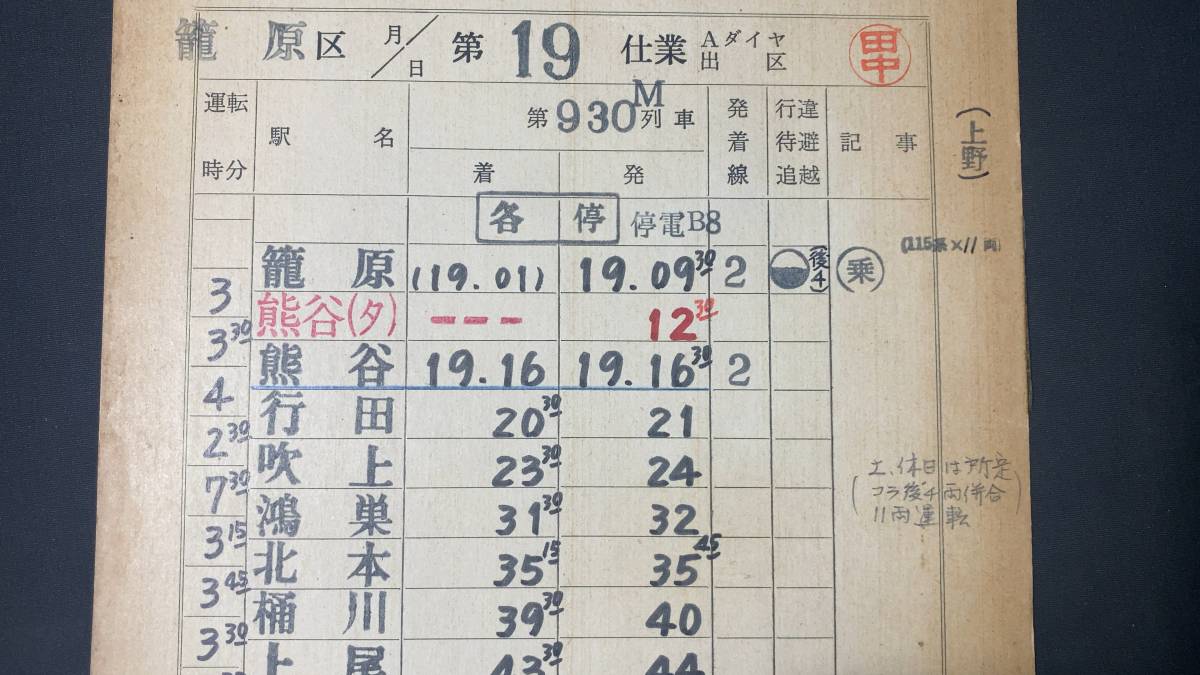 籠原区 月/日 第19仕業 Aダイヤ出区 田中
運転時分 駅名 第930M列車 着 発 発着線 行違待避追越 記事 (上野)
各停 停電B8
籠原 (19.01) 19.09 30 2 (後4) 乗 (115系×11両)
3
熊谷(タ) --- 12 30
3 30
熊谷 19.16 19.16 30 2
4
行田 20 30 21
2 30
吹上 23 30 24
7 30
鴻巣 31 30 32
3 15
北本 35 15 35 45
3 45
桶川 39 30 40
3 30
上尾 43 30 44
土、休日は所定
(コラ後4両併合)
11両運転